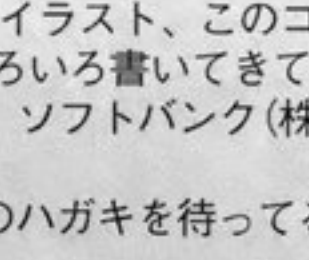 イラスト、このコ
ろいろ書いてきて
ソフトバンク(株
のハガキを待ってる